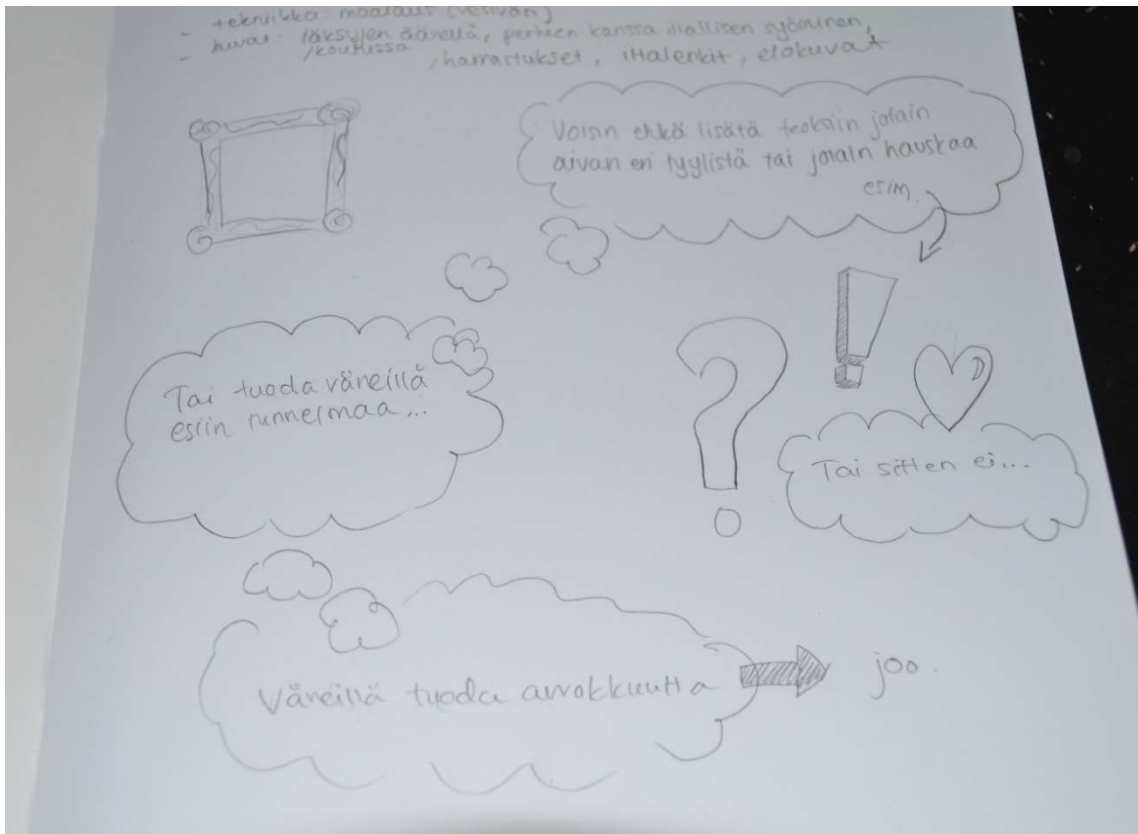 - tekniikka: maalaus (vesiväri)
- kuvat: läksyjen äärellä, perheen kanssa illallisen syöminen,
/koulussa , harrastukset, iltalenkit, elokuvat
Voisin ehkä lisätä teoksiin jotain
aivan eri tyylistä tai jotain hauskaa
esim.
Tai tuoda väreillä
esiin tunnelmaa...
Tai sitten ei...
Väreillä tuoda arvokkuutta
joo.